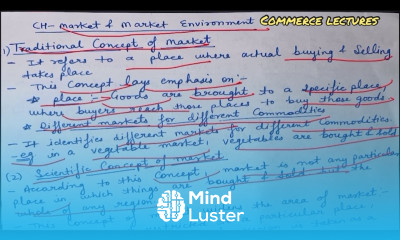 CH- Market & Market Environment Commerce lectures
1) Traditional Concept of Market
- It refers to a place where actual buying & Selling
takes place
- This Concept lays emphasis on:-
* place:- Goods are brought to a specific place,
where buyers reach those places to buy those goods.
* Different markets for different Commodities
- It identifies different markets for different Commodities.
eg in a vegetable market, vegetables are bought & sold
(2) Scientific Concept of market
- According to this Concept, market is not any particular
place in which things are bought & sold but the
whole of any region
Mind
Luster